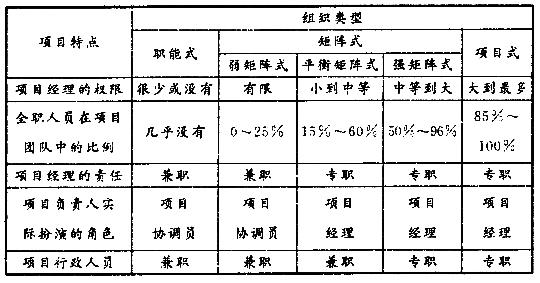 组织类型
项目特点 职能式 矩阵式 项目式
弱矩阵式 平衡矩阵式 强矩阵式
项目经理的权限 很少或没有 有限 小到中等 中等到大 大到最多
全职人员在项目 几乎没有 0～25% 15%～60% 50%～96% 85%～
团队中的比例 100%
项目经理的责任 兼职 兼职 专职 专职 专职
项目负责人实 项目 项目 项目 项目 项目
际扮演的角色 协调员 协调员 经理 经理 经理
项目行政人员 兼职 兼职 兼职 专职 专职